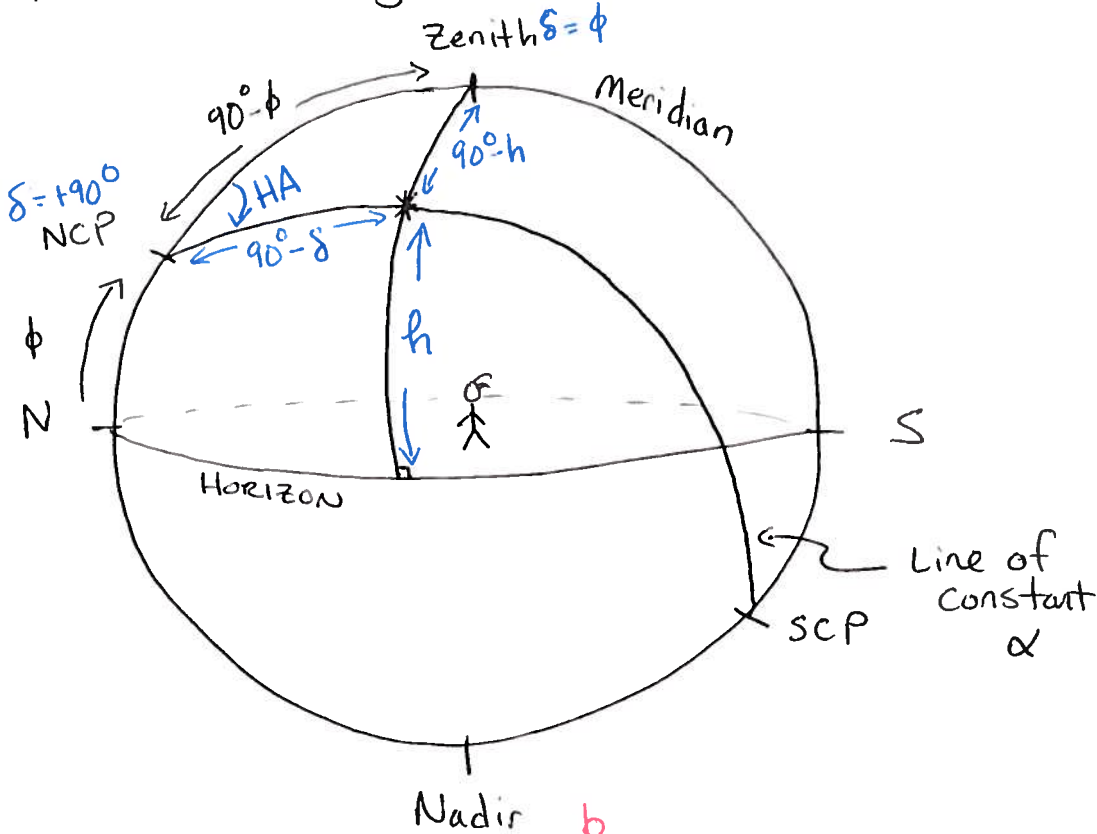 Zenith δ = ϕ
Meridian
90°-ϕ
90°-h
HA
δ=+90°
NCP
90°-δ
ϕ
h
N
S
HORIZON
Line of
constant
α
SCP
Nadir
b